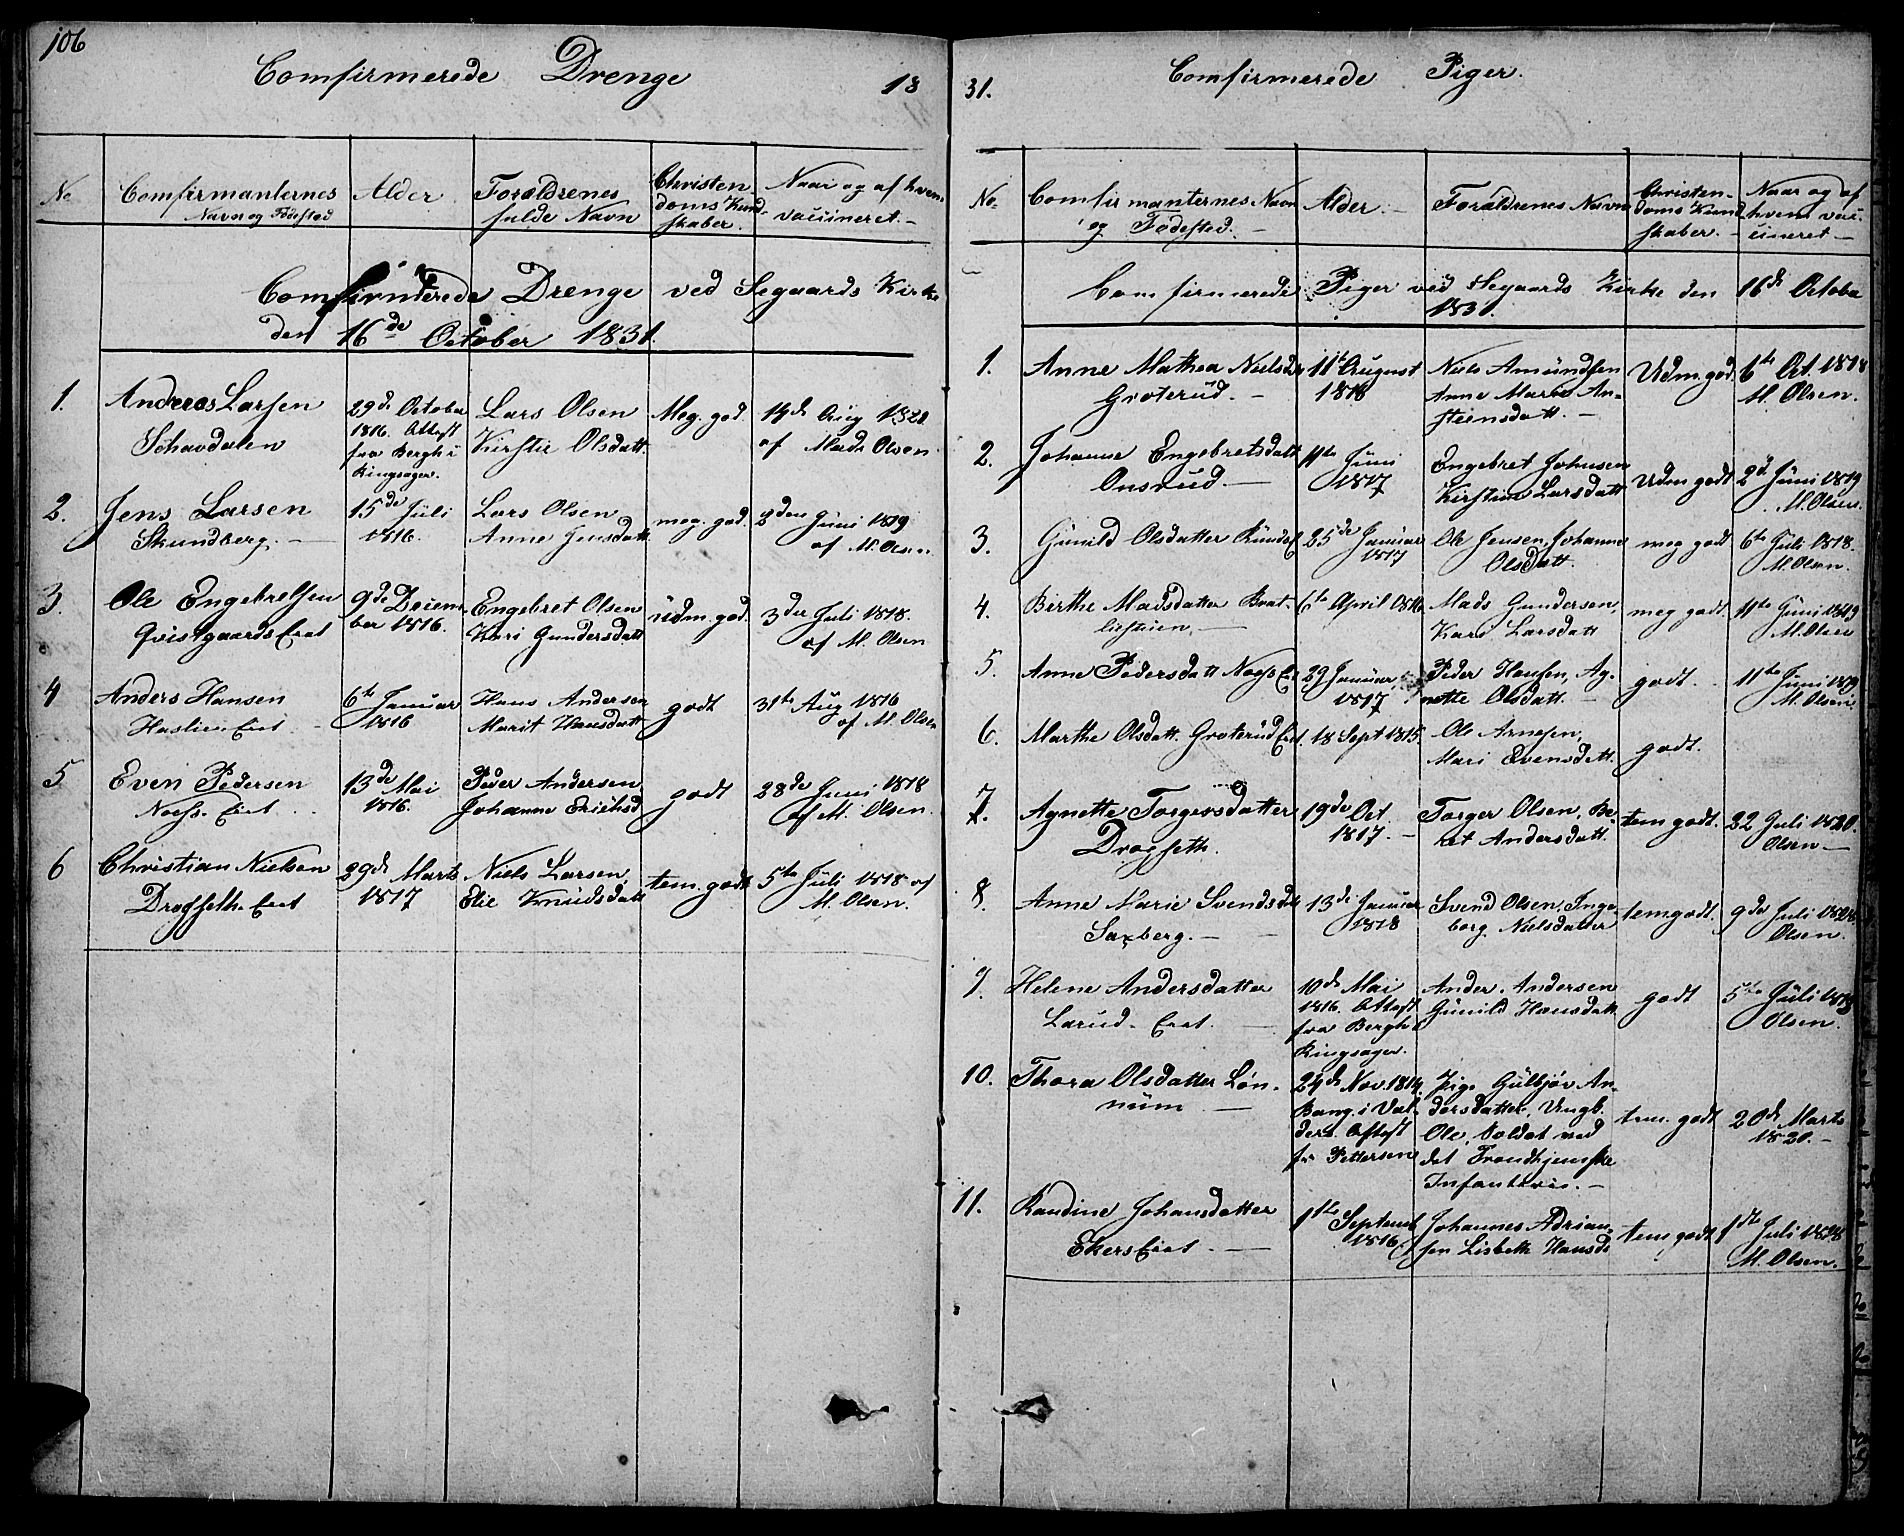 106
Comfirmerede Drenge
18
No
Comfirmanternes
Navn og Fødested
Alder
Forældrenes
fulde Navn
Christen-
doms Kund-
skaber.
Naar og af hvem
vaccineret.-
Comfirmerede Drenge ved Segaards Kirke
den 16de October 1831.
1.
Anders Larsen
29de October
1816. Attest
fra Bergh i
Ringsager.
Lars Olsen
Kirstie Olsdatt.
Meg. god.
14de Aug 1820
af Mads Olsen.
2.
Jens Larsen
Skundberg.
15de Juli
1816.
Lars Olsen
Anne Jensdatt
meg. god.
2den Juni 1819
af M. Olsen
3.
Ole Engebretsen
Qvistgaards Eiet
9de Decem-
ber 1816.
Engebret Olsen
Kari Gundersdatt
üdm. god.
3de Juli 1818.
af M. Olsen
4
Anders Hansen
Haslien Eiet
6te Januar
1816
Hans Andersen
Marit Hansdatt
godt
31te Aug 1816
af M. Olsen
5
Even Pedersen
Noess. Eiet
13de Mai
1816.
Peder Andersen
Johanne Erichsd
godt
28de Juni 1818
af M. Olsen.
6
Christian Nielsen
Dragseth. Eiet
29de Marts
1817
Niels Larsen,
Elie Knudsdatt
tem. godt
5te Juli 1818 af
M. Olsen.
31.
Comfirmerede Piger.
No.
Comfirmanternes Navn
og Fødested.-
Alder.-
Forældrenes Navne
Christen-
doms Kund-
skaber.-
Naar og af
hvem vac-
cineret-
Comfirmerede Piger ved Segaards Kirke den 16de Octobe
1831.
1.
Anne Mathea Nielsda
Groterud.-
11te August
1816
Niels Amundsen
Anne Marie An-
steensdatt.-
Udm. god.
6te Oct. 1818
M. Olsen.
2.
Johanne Engebretsdatt
Onsrud.-
11te Juni
1817
Engebret Johnsen
Kirstine Larsdatt
Udm godt
2d Juni 1819
M. Olsen.
3.
Gunild Olsdatter
25de Januar
1817
Ole Jensen, Johanne
Olsdatt.
meg godt
6te Juli 1818.
M. Olsen.
4.
Birthe Madsdatter Brat-
6te April 1816
Mads Gundersen,
Kari Larsdatt
meg godt
11te Juni 1819
M. Olsen
5.
Anne Pedersdatt Noess Eiet
29 Januar,
1817
Peder Hansen, Ag-
nette Olsdatt.-
godt.
11te Juni 1819
M. Olsen.
6.
Marthe Olsdatt. Groterud Eiet.
18 Sept 1815.
Ole Arnesen,
Mari Evensdatt.
godt.
7.
Agnette Torgersdatter
Dragseth.
19de Oct.
1817.-
Torger Olsen, Be-
ret Andersdatt.
tem godt.
22 Juli 1820.
Olsen-
8.
Anne Marie Svendsdat
Saxberg.-
13de Januar
1818
Svend Olsen, Inge-
borg Nielsdatter
tem godt.
9de Juli
Olsen.
9.
Helene Andersdatter
Larud. Eiet.-
10de Mai
1816. Attest
fra Bergh i
Ringsager.
Ander. Andersen
Gunild Hansdatt.
godt
5te Juli 1819
Olsen.
10.
Thora Olsdatter Løn-
num-
24de Nov. 1814.
Bang. i Val-
ders. Attest
fr Pettersen
Pige Gulbjør An-
dersdatter, Ungk.
Ole, Soldat ved
det Trondhjemske
Infanterie.-
tem. godt
20de Marts
1820.-
11.
Randine Johansdatter
Ekers Eiet.-
1te Septemb
1816.
Johannes Adrian-
sen Lisbeth Hansd
tem godt
1te Juli 1818
M. Olsen.